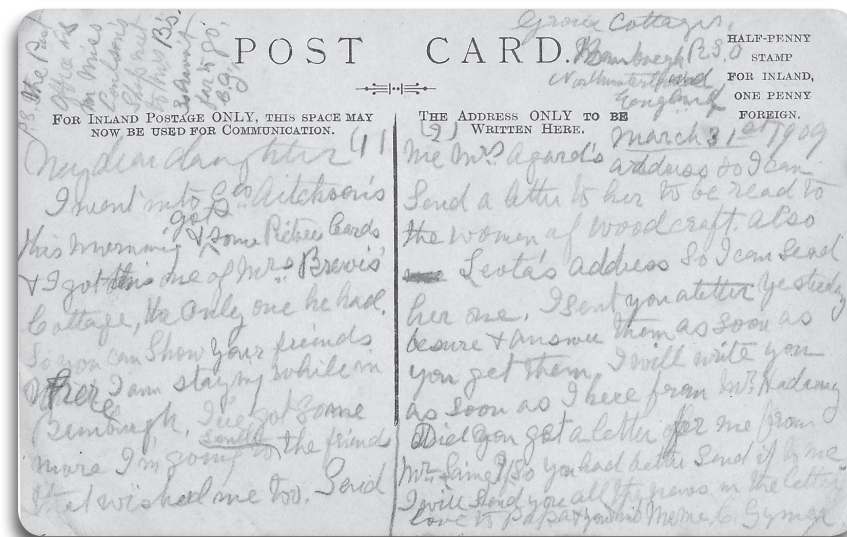 Grove Cottages,
Bamburgh R.S.O
Northumberland
England
March 31st 1909
POST CARD.
HALF-PENNY
STAMP
FOR INLAND,
ONE PENNY
FOREIGN.
FOR INLAND POSTAGE ONLY, THIS SPACE MAY
NOW BE USED FOR COMMUNICATION.
THE ADDRESS ONLY TO BE
WRITTEN HERE.
My dear daughter (1)
I went into Geo Aitchson's
this morning & got some Picture Cards
& I got this one of Mrs Brewis'
Cottage, the only one he had.
So you can show your friends
where I am staying while in
Bamburgh. I've got some
more I'm going to send the friends
that wished me to. Send
(2)
me Mrs Agard's address so I can
send a letter to her to be read to
the women of woodcraft. also
Leota's address so I can send
her one. I sent you a letter yesterday
be sure & answer them as soon as
you get them. I will write you
as soon as I here from Mr.
Did you get a letter for me from
Mrs So you had better send it to me
I will send you all the news in the letter
love to Papa & you
P.S. The Post
Office is
in Miss
Step next
to Mrs B's.